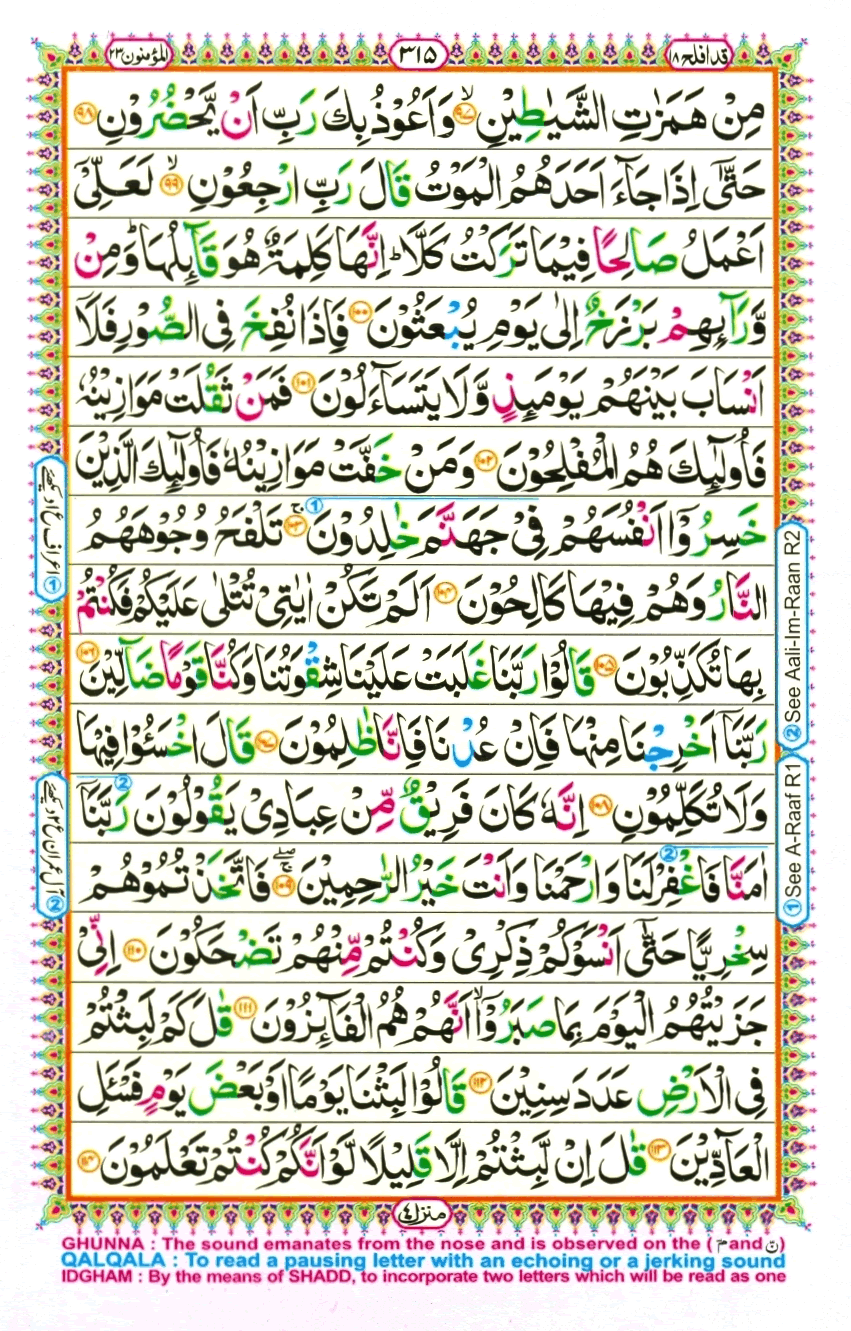 المؤمنون ٢٣
٣١٥
قد افلح ١٨
مِنْ هَمَزٰتِ الشَّيٰطِيْنِ ۙ‏﴿۹۷﴾ وَاَعُوْذُ بِكَ رَبِّ اَنْ يَّحْضُرُوْنِ ﴿۹۸﴾
حَتّٰٓى اِذَا جَآءَ اَحَدَهُمُ الْمَوْتُ قَالَ رَبِّ ارْجِعُوْنِ ۙ‏﴿۹۹﴾ لَعَلِّىْٓ
اَعْمَلُ صَالِحًا فِيْمَا تَرَكْتُ كَلَّا ؕ اِنَّهَا كَلِمَةٌ هُوَ قَآئِلُهَا ؕ وَمِنْ
وَّرَآئِهِمْ بَرْزَخٌ اِلٰى يَوْمِ يُبْعَثُوْنَ ﴿۱۰۰﴾ فَاِذَا نُفِخَ فِى الصُّوْرِ فَلَاۤ
اَنْسَابَ بَيْنَهُمْ يَوْمَئِذٍ وَّلَا يَتَسَآءَلُوْنَ ﴿۱۰۱﴾ فَمَنْ ثَقُلَتْ مَوَازِيْنُهٗ
فَاُولٰٓئِكَ هُمُ الْمُفْلِحُوْنَ ﴿۱۰۲﴾ وَمَنْ خَفَّتْ مَوَازِيْنُهٗ فَاُولٰٓئِكَ الَّذِيْنَ
خَسِرُوْۤا اَنْفُسَهُمْ فِىْ جَهَنَّمَ خٰلِدُوْنَ ۚ‏﴿۱۰۳﴾ تَلْفَحُ وُجُوْهَهُمُ
النَّارُ وَهُمْ فِيْهَا كَالِحُوْنَ ﴿۱۰۴﴾ اَلَمْ تَكُنْ اٰيٰتِىْ تُتْلٰى عَلَيْكُمْ فَكُنْتُمْ
بِهَا تُكَذِّبُوْنَ ﴿۱۰۵﴾ قَالُوْا رَبَّنَا غَلَبَتْ عَلَيْنَا شِقْوَتُنَا وَكُنَّا قَوْمًا ضَآلِّيْنَ ﴿۱۰۶﴾
رَبَّنَاۤ اَخْرِجْنَا مِنْهَا فَاِنْ عُدْنَا فَاِنَّا ظٰلِمُوْنَ ﴿۱۰۷﴾ قَالَ اخْسَئُوْا فِيْهَا
وَلَا تُكَلِّمُوْنِ ﴿۱۰۸﴾ اِنَّهٗ كَانَ فَرِيْقٌ مِّنْ عِبَادِىْ يَقُوْلُوْنَ رَبَّنَاۤ
اٰمَنَّا فَاغْفِرْ لَنَا وَارْحَمْنَا وَاَنْتَ خَيْرُ الرّٰحِمِيْنَ ۖۚ‏﴿۱۰۹﴾ فَاتَّخَذْتُمُوْهُمْ
سِخْرِيًّا حَتّٰٓى اَنْسَوْكُمْ ذِكْرِىْ وَكُنْتُمْ مِّنْهُمْ تَضْحَكُوْنَ ﴿۱۱۰﴾ اِنِّىْ
جَزَيْتُهُمُ الْيَوْمَ بِمَا صَبَرُوْۤا ۙ اَنَّهُمْ هُمُ الْفَآئِزُوْنَ ﴿۱۱۱﴾ قٰلَ كَمْ لَبِثْتُمْ
فِى الْاَرْضِ عَدَدَ سِنِيْنَ ﴿۱۱۲﴾ قَالُوْا لَبِثْنَا يَوْمًا اَوْ بَعْضَ يَوْمٍ فَسْئَلِ
الْعَآدِّيْنَ ﴿۱۱۳﴾ قٰلَ اِنْ لَّبِثْتُمْ اِلَّا قَلِيْلًا لَّوْ اَنَّكُمْ كُنْتُمْ تَعْلَمُوْنَ ﴿۱۱۴﴾
اعراف ع ١ دیکھئے ①
آل عمران ع ٢ دیکھئے ②
② See Aali-Im-Raan R2
① See A-Raaf R1
منزل ٤
GHUNNA : The sound emanates from the nose and is observed on the ( مّ and نّ )
QALQALA : To read a pausing letter with an echoing or a jerking sound
IDGHAM : By the means of SHADD, to incorporate two letters which will be read as one